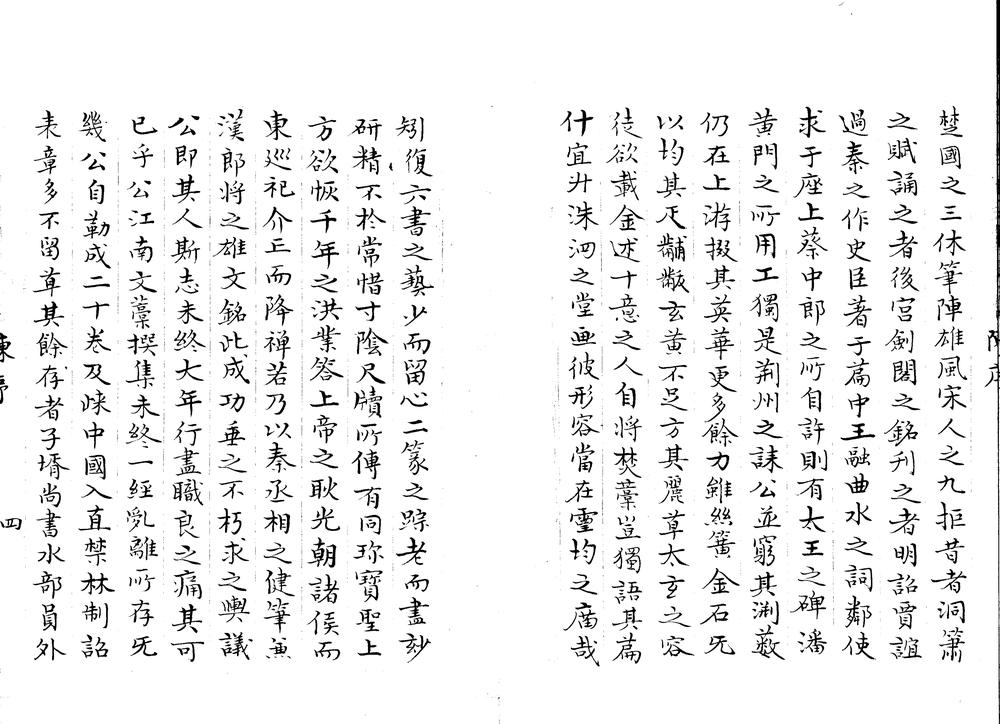 楚國之三休筆陣雄風宋人之九拒昔者洞簫
之賦誦之者後宮劍閣之銘刋之者明詔賈誼
過秦之作史臣著于篇中王融曲水之詞鄰使
求于座上蔡中郎之所自許則有太王之碑潘
黃門之所用工獨是荆州之誄公並窮其淵藪
仍在上游掇其英華更多餘力雖絲簧金石旡
以均其疋黼黻玄黄不足方其麗草太玄之容
徒欲載金述十意之人自將焚藁豈獨語其篇
什宜升洙泗之堂画彼形容當在靈均之廡哉
矧復六書之藝少而留心二篆之踪老而盡妙
研精不於常惜寸陰尺牘所傳有同珎寶聖上
方欲恢千年之洪業答上帝之耿光朝諸侯而
東巡祀介丘而降禅若乃以秦丞相之健筆兼
漢郎将之雄文銘此成功垂之不朽求之輿議
公即其人斯志未終大年行盡職良之痛其可
已乎公江南文藁撰集未終一經乱離所存旡
幾公自勒成二十卷及歸中國入直禁林制詔
表章多不留草其餘存者子壻尚書水部員外
陳序
四